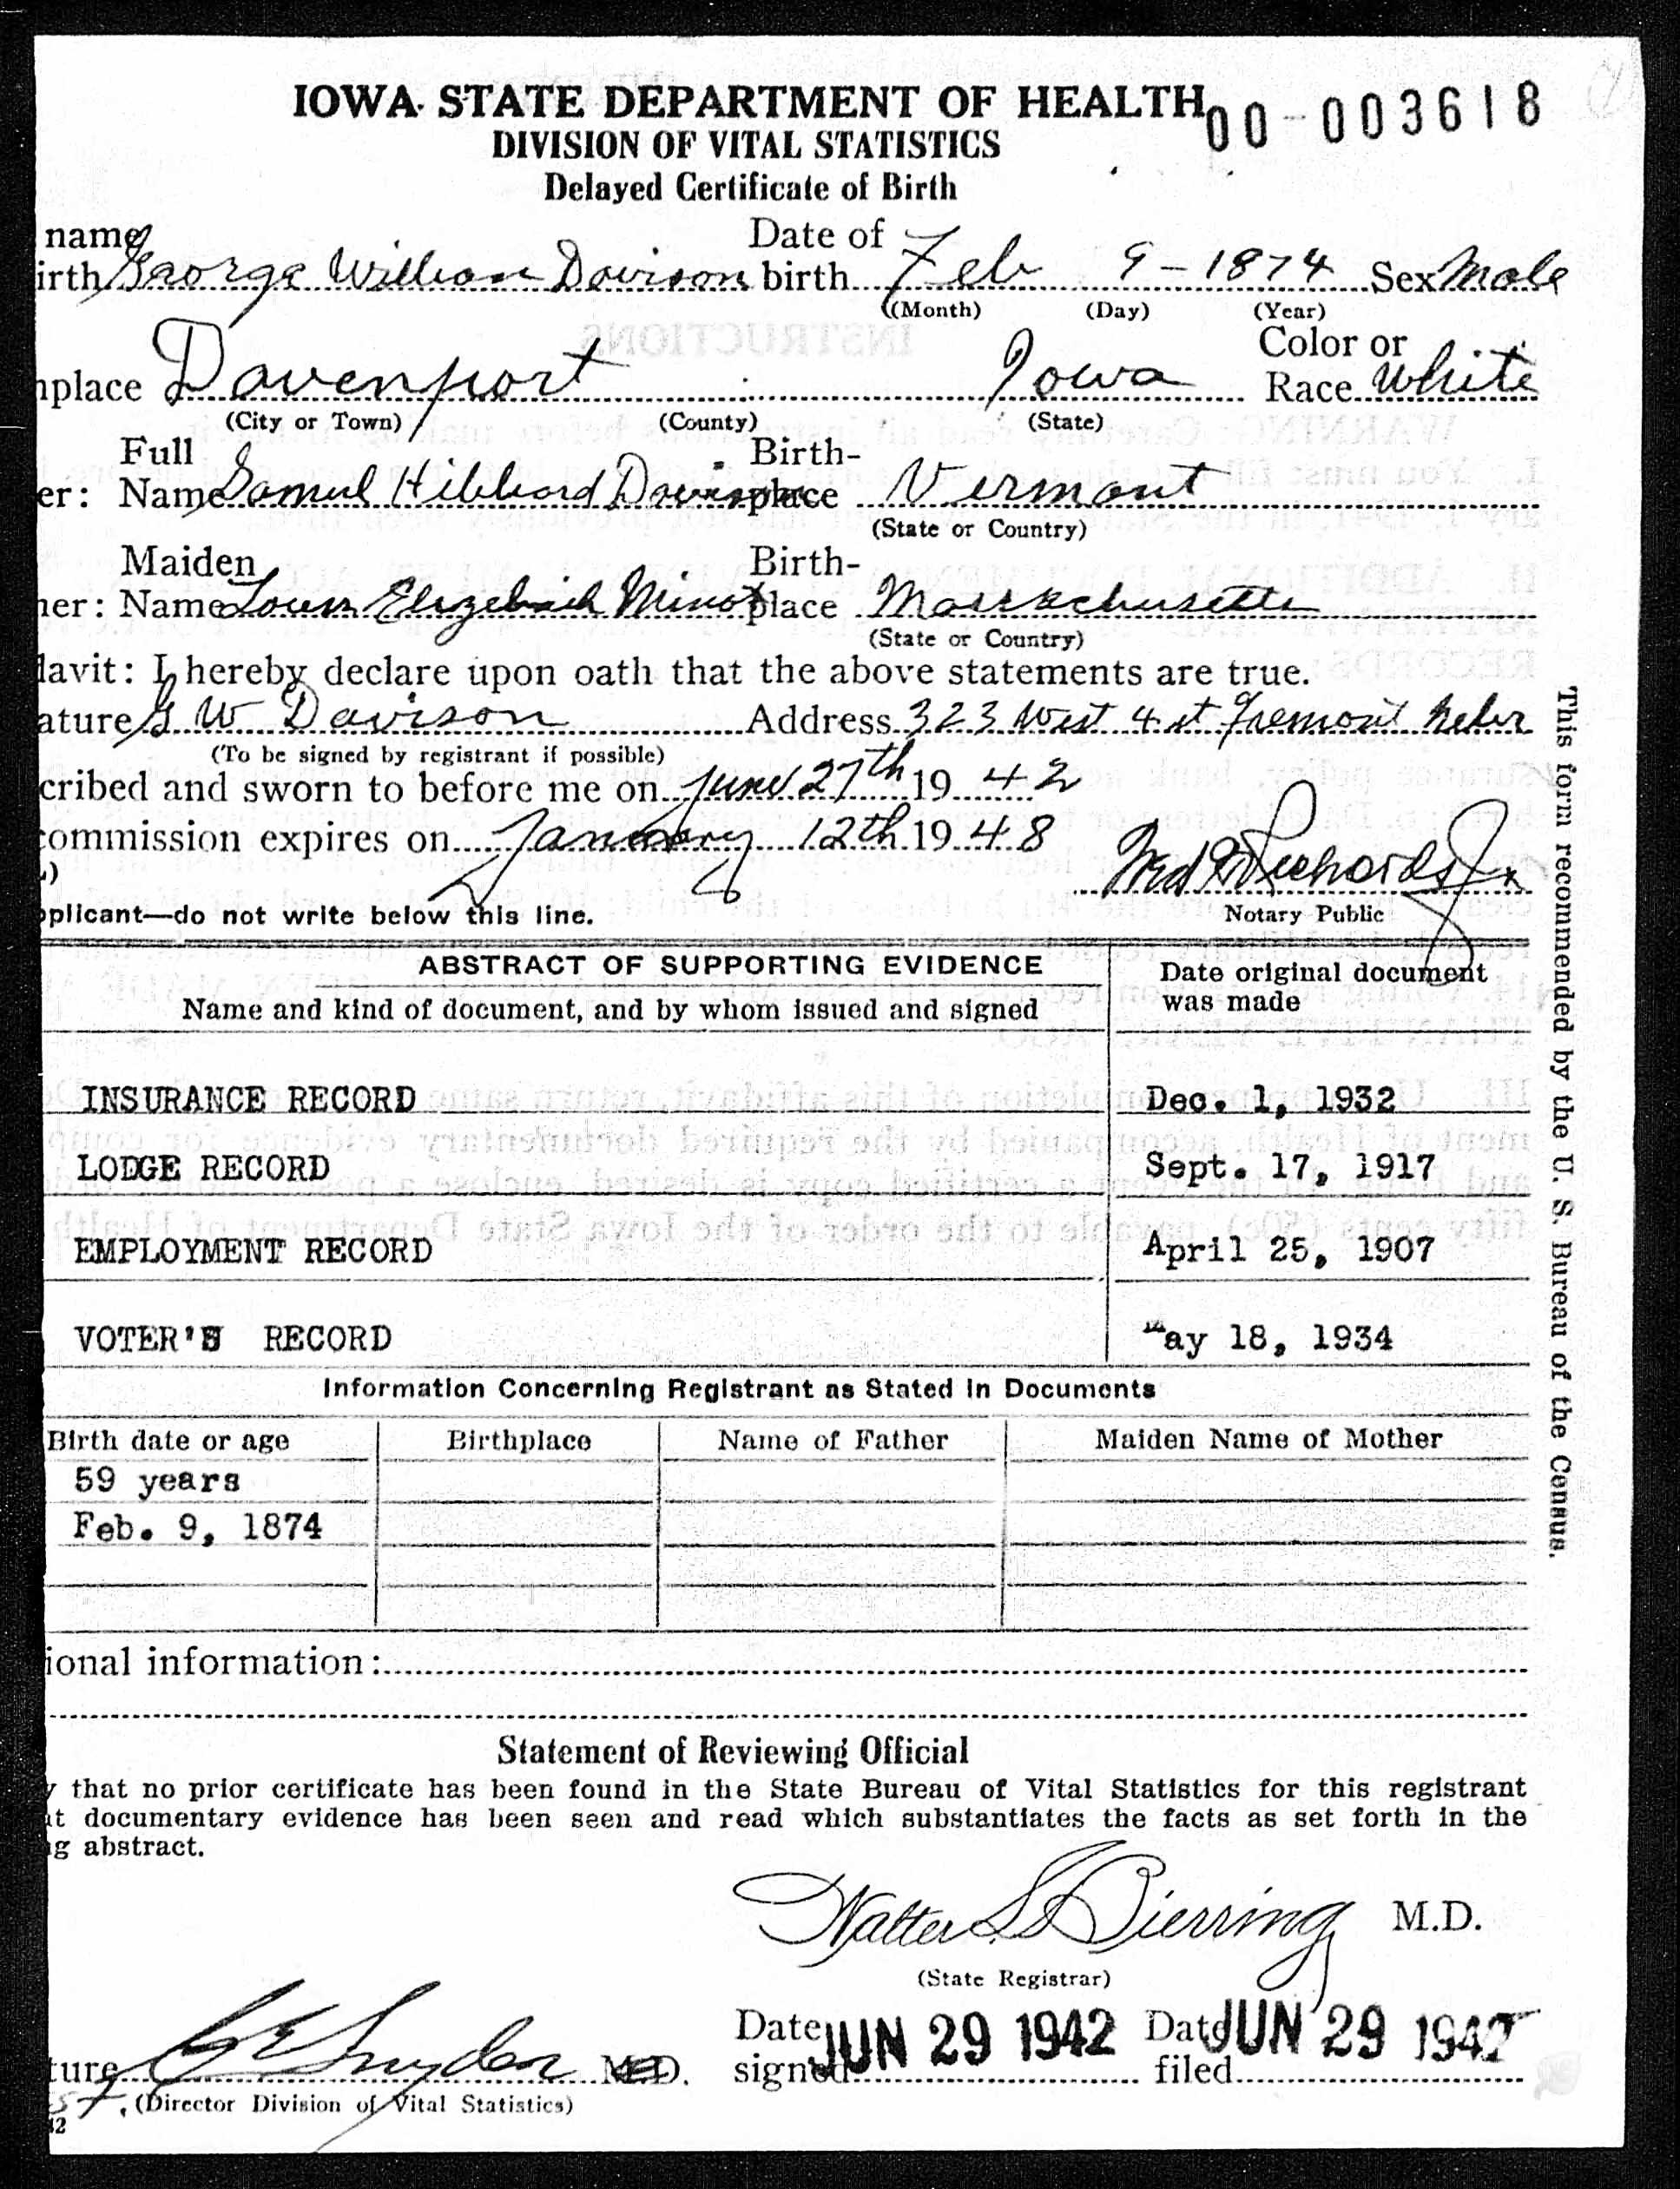 IOWA STATE DEPARTMENT OF HEALTH 00-003618
DIVISION OF VITAL STATISTICS
Delayed Certificate of Birth
name Date of
irth George William Davison birth Feb 9-1874 Sex Male
(Month) (Day) (Year)
Color or
nplace Davenport Iowa Race White
(City or Town) (County) (State)
Full Birth-
er: Name Samuel Hibbard Davison place Vermont
(State or Country)
Maiden Birth-
her: Name Elizebeth Minot place Massachusetts
(State or Country)
davit: I hereby declare upon oath that the above statements are true.
ature G W Davison Address 323 West 4 st Fremont Nebr
(To be signed by registrant if possible)
cribed and sworn to before me on June 27th 19 42
commission expires on January 12th 19 48
.) Richards Jr
pplicant—do not write below this line. Notary Public
ABSTRACT OF SUPPORTING EVIDENCE Date original document
Name and kind of document, and by whom issued and signed was made
INSURANCE RECORD Dec. 1, 1932
LODGE RECORD Sept. 17, 1917
EMPLOYMENT RECORD April 25, 1907
VOTER'S RECORD May 18, 1934
Information Concerning Registrant as Stated in Documents
Birth date or age Birthplace Name of Father Maiden Name of Mother
59 years
Feb. 9, 1874
ional information:
Statement of Reviewing Official
y that no prior certificate has been found in the State Bureau of Vital Statistics for this registrant
at documentary evidence has been seen and read which substantiates the facts as set forth in the
ng abstract.
Walter L Bierring M.D.
(State Registrar)
Date JUN 29 1942 Date JUN 29 1942
ture Snyder M.D. signed filed
(Director Division of Vital Statistics)
42
This form recommended by the U. S. Bureau of the Census.